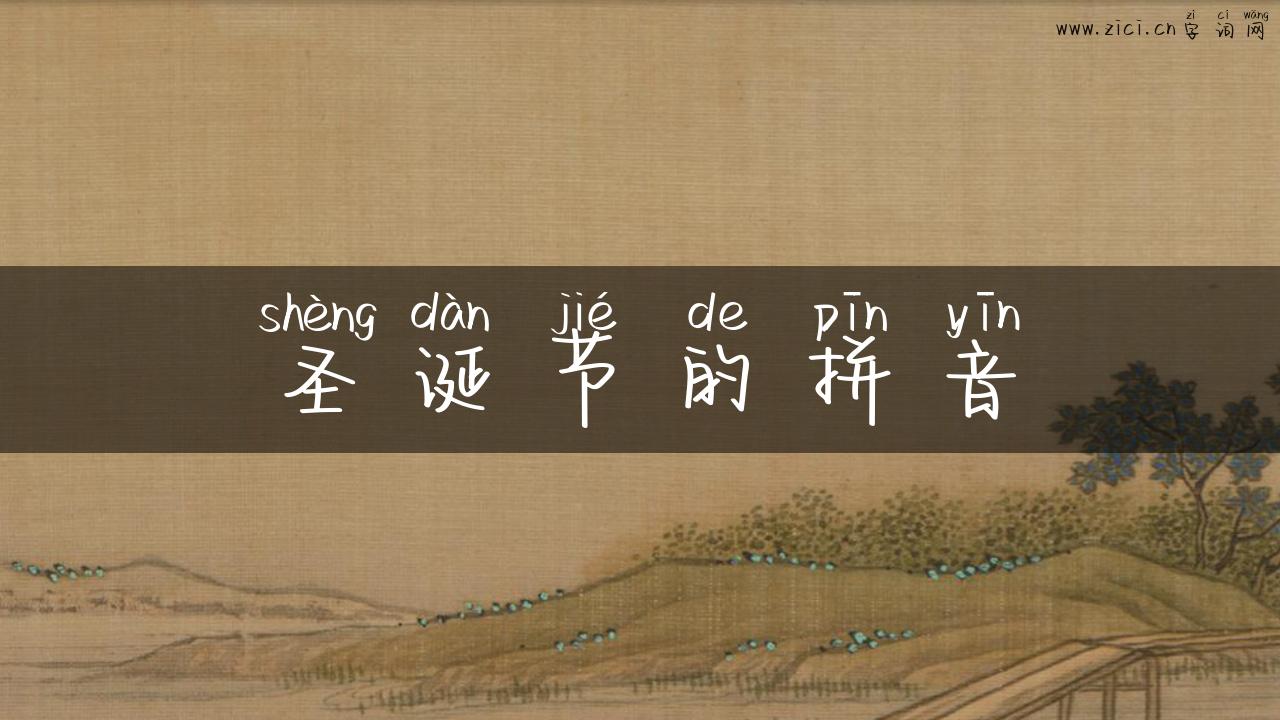 zì cí wǎng
www.zici.cn字词网
shèng dàn jié de pīn yīn
圣诞节的拼音